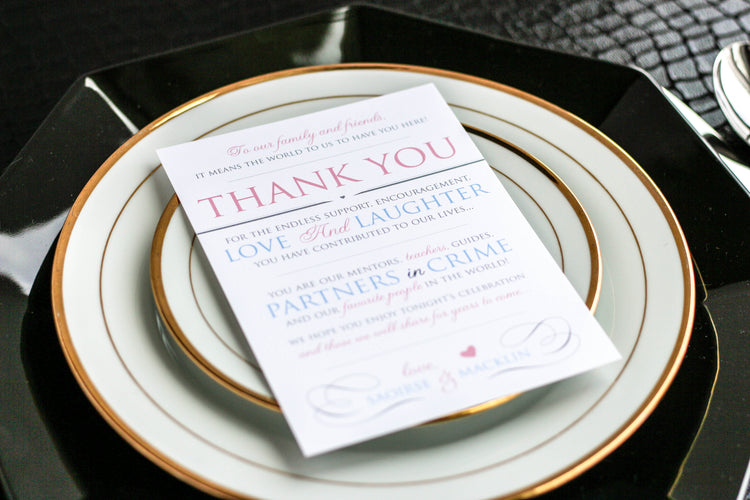 To our family and friends,
IT MEANS THE WORLD TO US TO HAVE YOU HERE!
THANK YOU
FOR THE ENDLESS SUPPORT, ENCOURAGEMENT,
LOVE And LAUGHTER
YOU HAVE CONTRIBUTED TO OUR LIVES...
YOU ARE OUR MENTORS, teachers, GUIDES,
PARTNERS in CRIME
AND OUR favorite people IN THE WORLD!
WE HOPE YOU ENJOY TONIGHT'S CELEBRATION
and those we will share for years to come...
love,
SAOIRSE & MACKLIN